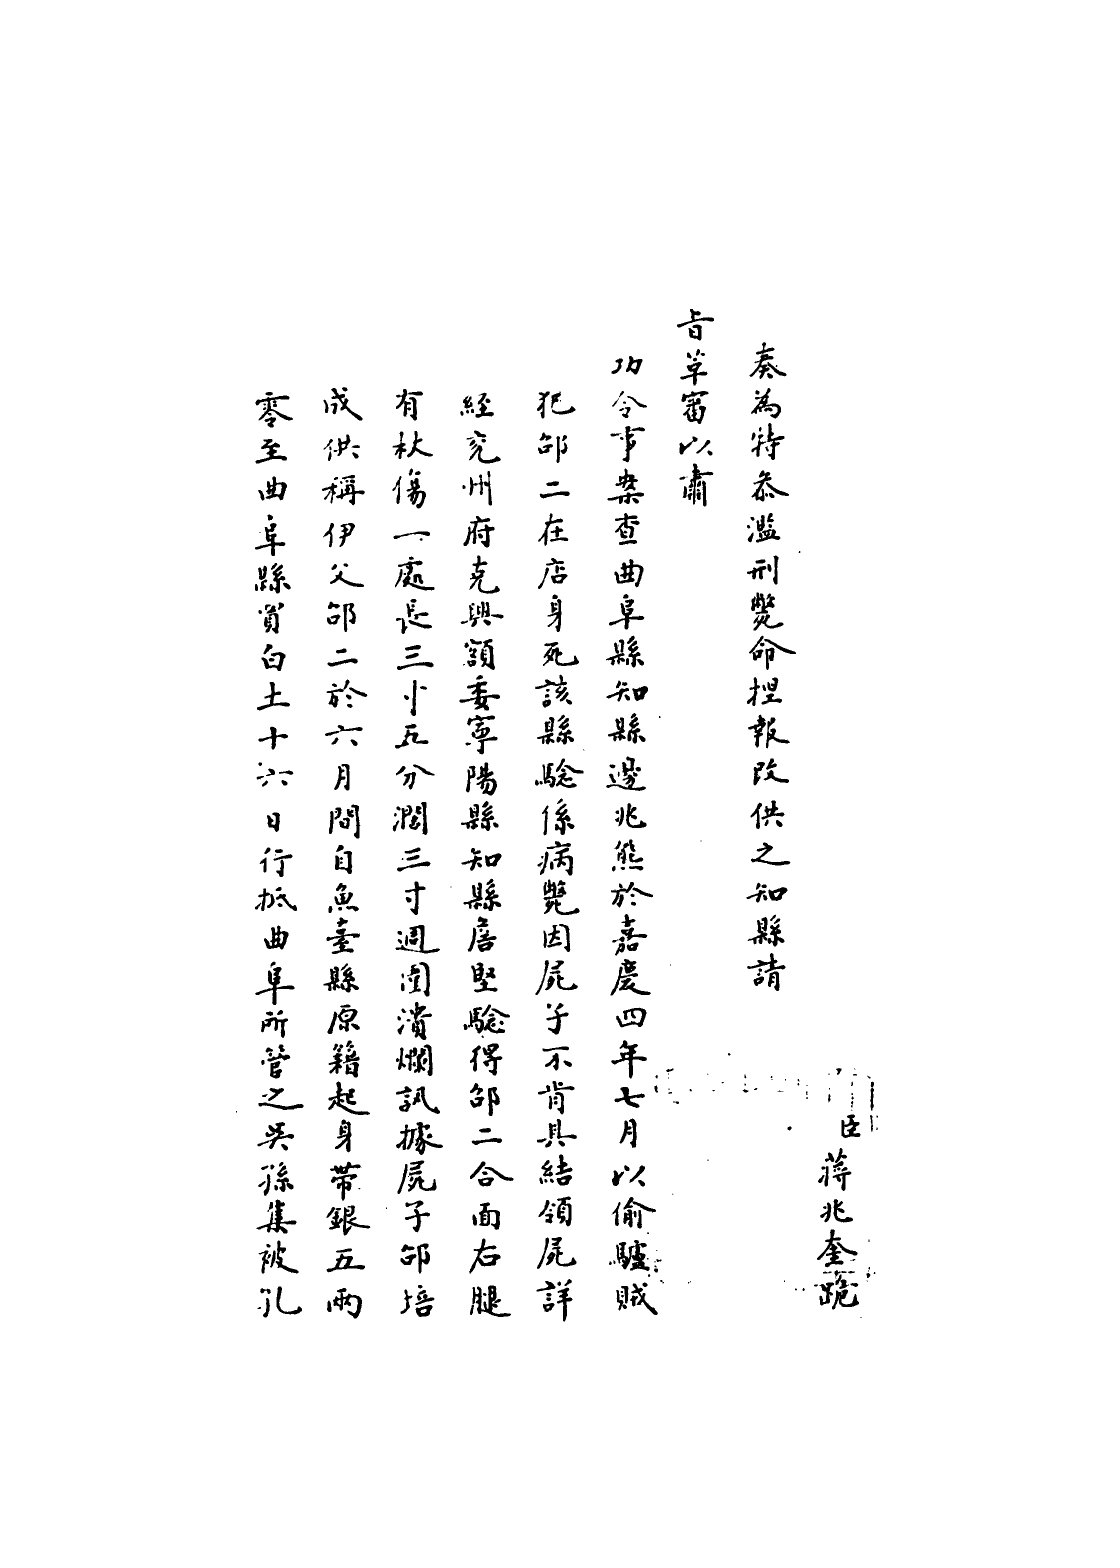 臣蔣兆奎跪
奏為特叅濫刑斃命捏報改供之知縣請
旨革審以肅
功令事案查曲阜縣知縣邊兆熊於嘉慶四年七月以偷驢賊
犯邵二在店身死該縣驗係病斃因屍子不肯具結領屍詳
經兖州府克興額委寧陽縣知縣唐堅驗得邵二合面右腿
有杖傷一處長三寸五分濶三寸週圍潰爛訊據屍子邵培
成供稱伊父邵二於六月間自魚臺縣原籍起身帶銀五兩
零至曲阜縣買白土十六日行抵曲阜所管之吳孫集被孔